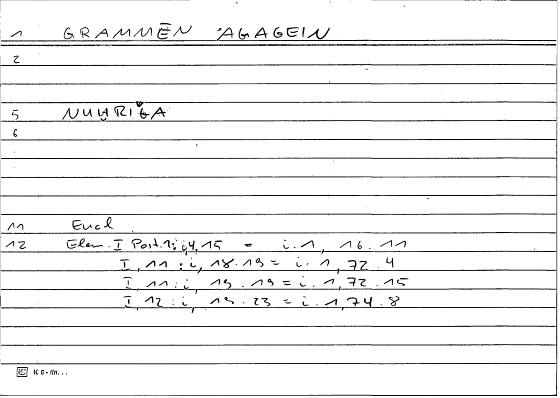 1 GRAMMĒN 'AGAGEIN
2
5
6
11 Eucl.
12 Elem. I Post. 1: i, 4, 15 = i. 1, 16. 11
I, 11 : i, 18. 19 = i. 1, 72. 4
I, 11 : i, 19. 19 = i. 1, 72. 15
I, 12 : i, 19. 23 = i. 1, 74. 8